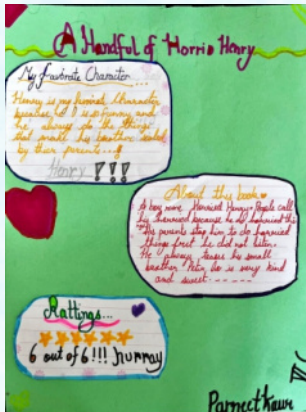 A Handful of Horrid Henry
My Favorite Character...
Henry is my
because he is so funny and
he always do the things
that make his brother
by their parents...!
Henry !!!
About this book
A boy name Horried Henry. People call
him horried because he do horried
The parents stop him to do horried
things but he did not listen.
He always tease his small
brother Peter, he is very kind
and sweet......
Rattings...
6 out of 6!!! hurray
Parneet Kaur